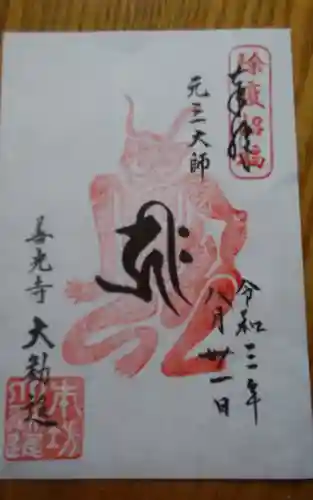 奉拝
令和三年
八月卅一日
元三大師
善光寺
大勧進
本坊